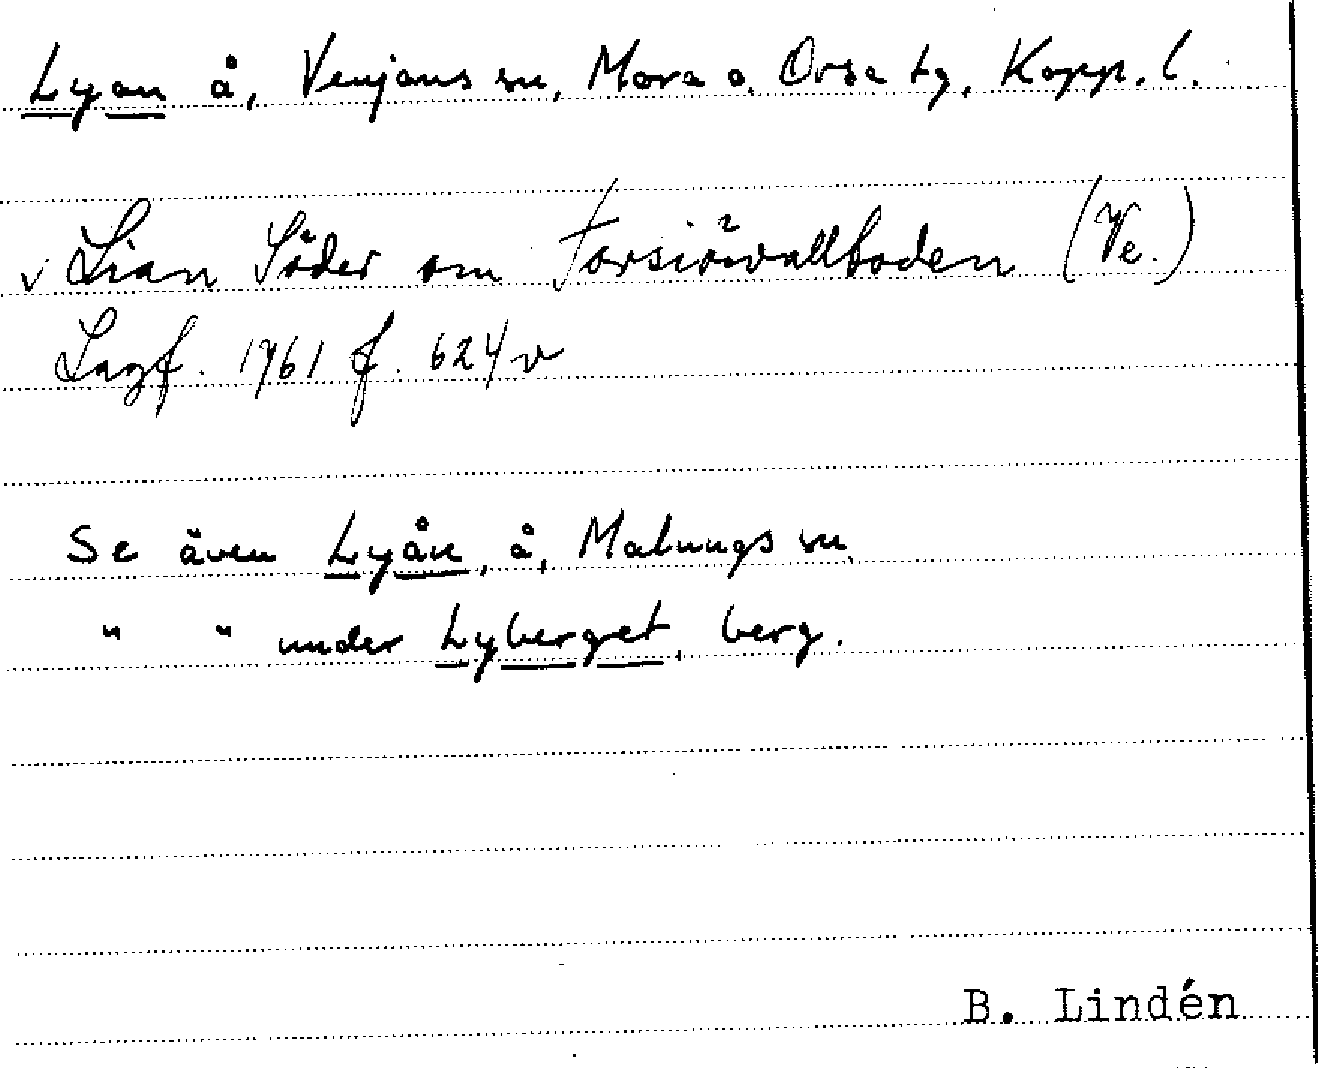 Lyan å, Venjans sn, Mora o. Orsa tg, Kopp. l.
v Lian Söder om Forsiöwallboden (Ve.)
Lagf. 1761 f. 624 v
Se även Lyån, å, Malungs sn.
" " under Lyberget, berg.
B. Lindén